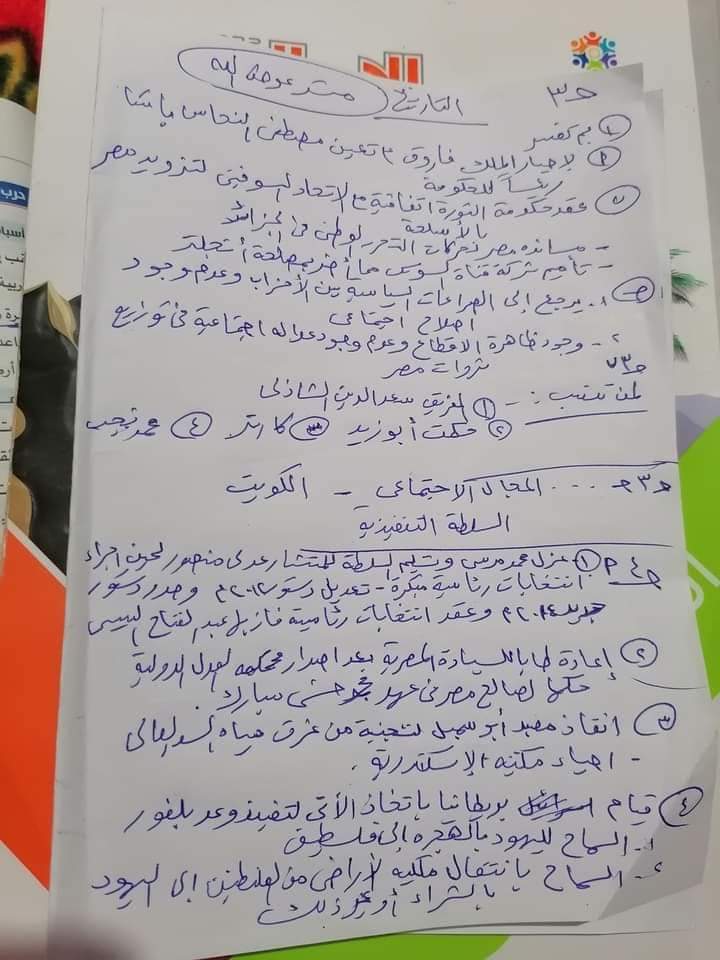 التاريخ مستر عوض الله
ج٣
١ بم تفسر
١ لإجبار الملك فاروق تعين مصطفى النحاس باشا
رئيساً للحكومة
٢ عقد حكومة الثورة اتفاقية مع الاتحاد السوفيتى لتزويد مصر
بالأسلحة
- مسانده مصر لحركات التحرر الوطنى فى الجزائر
- تأميم شركة قناة السويس مما أضر بمصلحة أنجلترا
١. يرجع إلى الصراعات السياسية بين الأحزاب وعدم وجود
اصلاح اجتماعى
٢- وجود ظاهرة الاقطاع وعدم وجود عداله اجتماعية فى توزيع
ثروات مصر
ج٣
لمن تنسب :- ١ الفريق سعد الدين الشاذلى
٢ حكمت أبوزيد ٣ كارتر ٤ محمد نجيب
ج٣ ... المجال الاجتماعى - الكويت
السلطة التنفيذية
ج٤ ١ عزل محمد مرسى وتسليم السلطة للمستشار عدلى منصور لحين اجراء
انتخابات رئاسية مبكرة - تعديل دستور ٢٠١٢م وصدر دستور
جديد ٢٠١٤م وعقد انتخابات رئاسية فاز بها عبد الفتاح السيسى
٢ إعادة طابا للسيادة المصرية بعد اصدار محكمه العدل الدولية
حكمها لصالح مصر فى عهد محمد حسنى مبارك
٣ انقاذ معبد أبو سمبل لتجنبه من غرق مياه السد العالى
- احياء مكتبه الإسكندرية .
٤ قيام بريطانيا باتخاذ الأتى لتنفيذ وعد بلفور
١- السماح لليهود بالهجره إلى فلسطين
٢- السماح بانتقال ملكيه الأراضى من الفلسطنين إلى اليهود
بالشراء أو غير ذلك